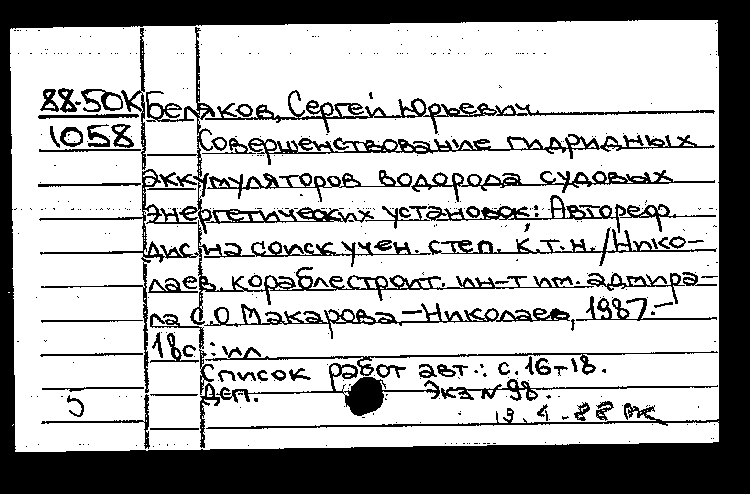 88-50К Беляков, Сергей Юрьевич.
1058 Совершенствование гидридных
аккумуляторов водорода судовых
энергетических установок: Автореф.
дис. на соиск. учен. степ. к.т.н. / Нико-
лаев. кораблестроит. ин-т им. адмира-
ла С.О. Макарова.-Николаев, 1987.-
18с.: ил.
Список работ авт.: с. 16-18.
Деп. Экз N 98.
5
13.4.88